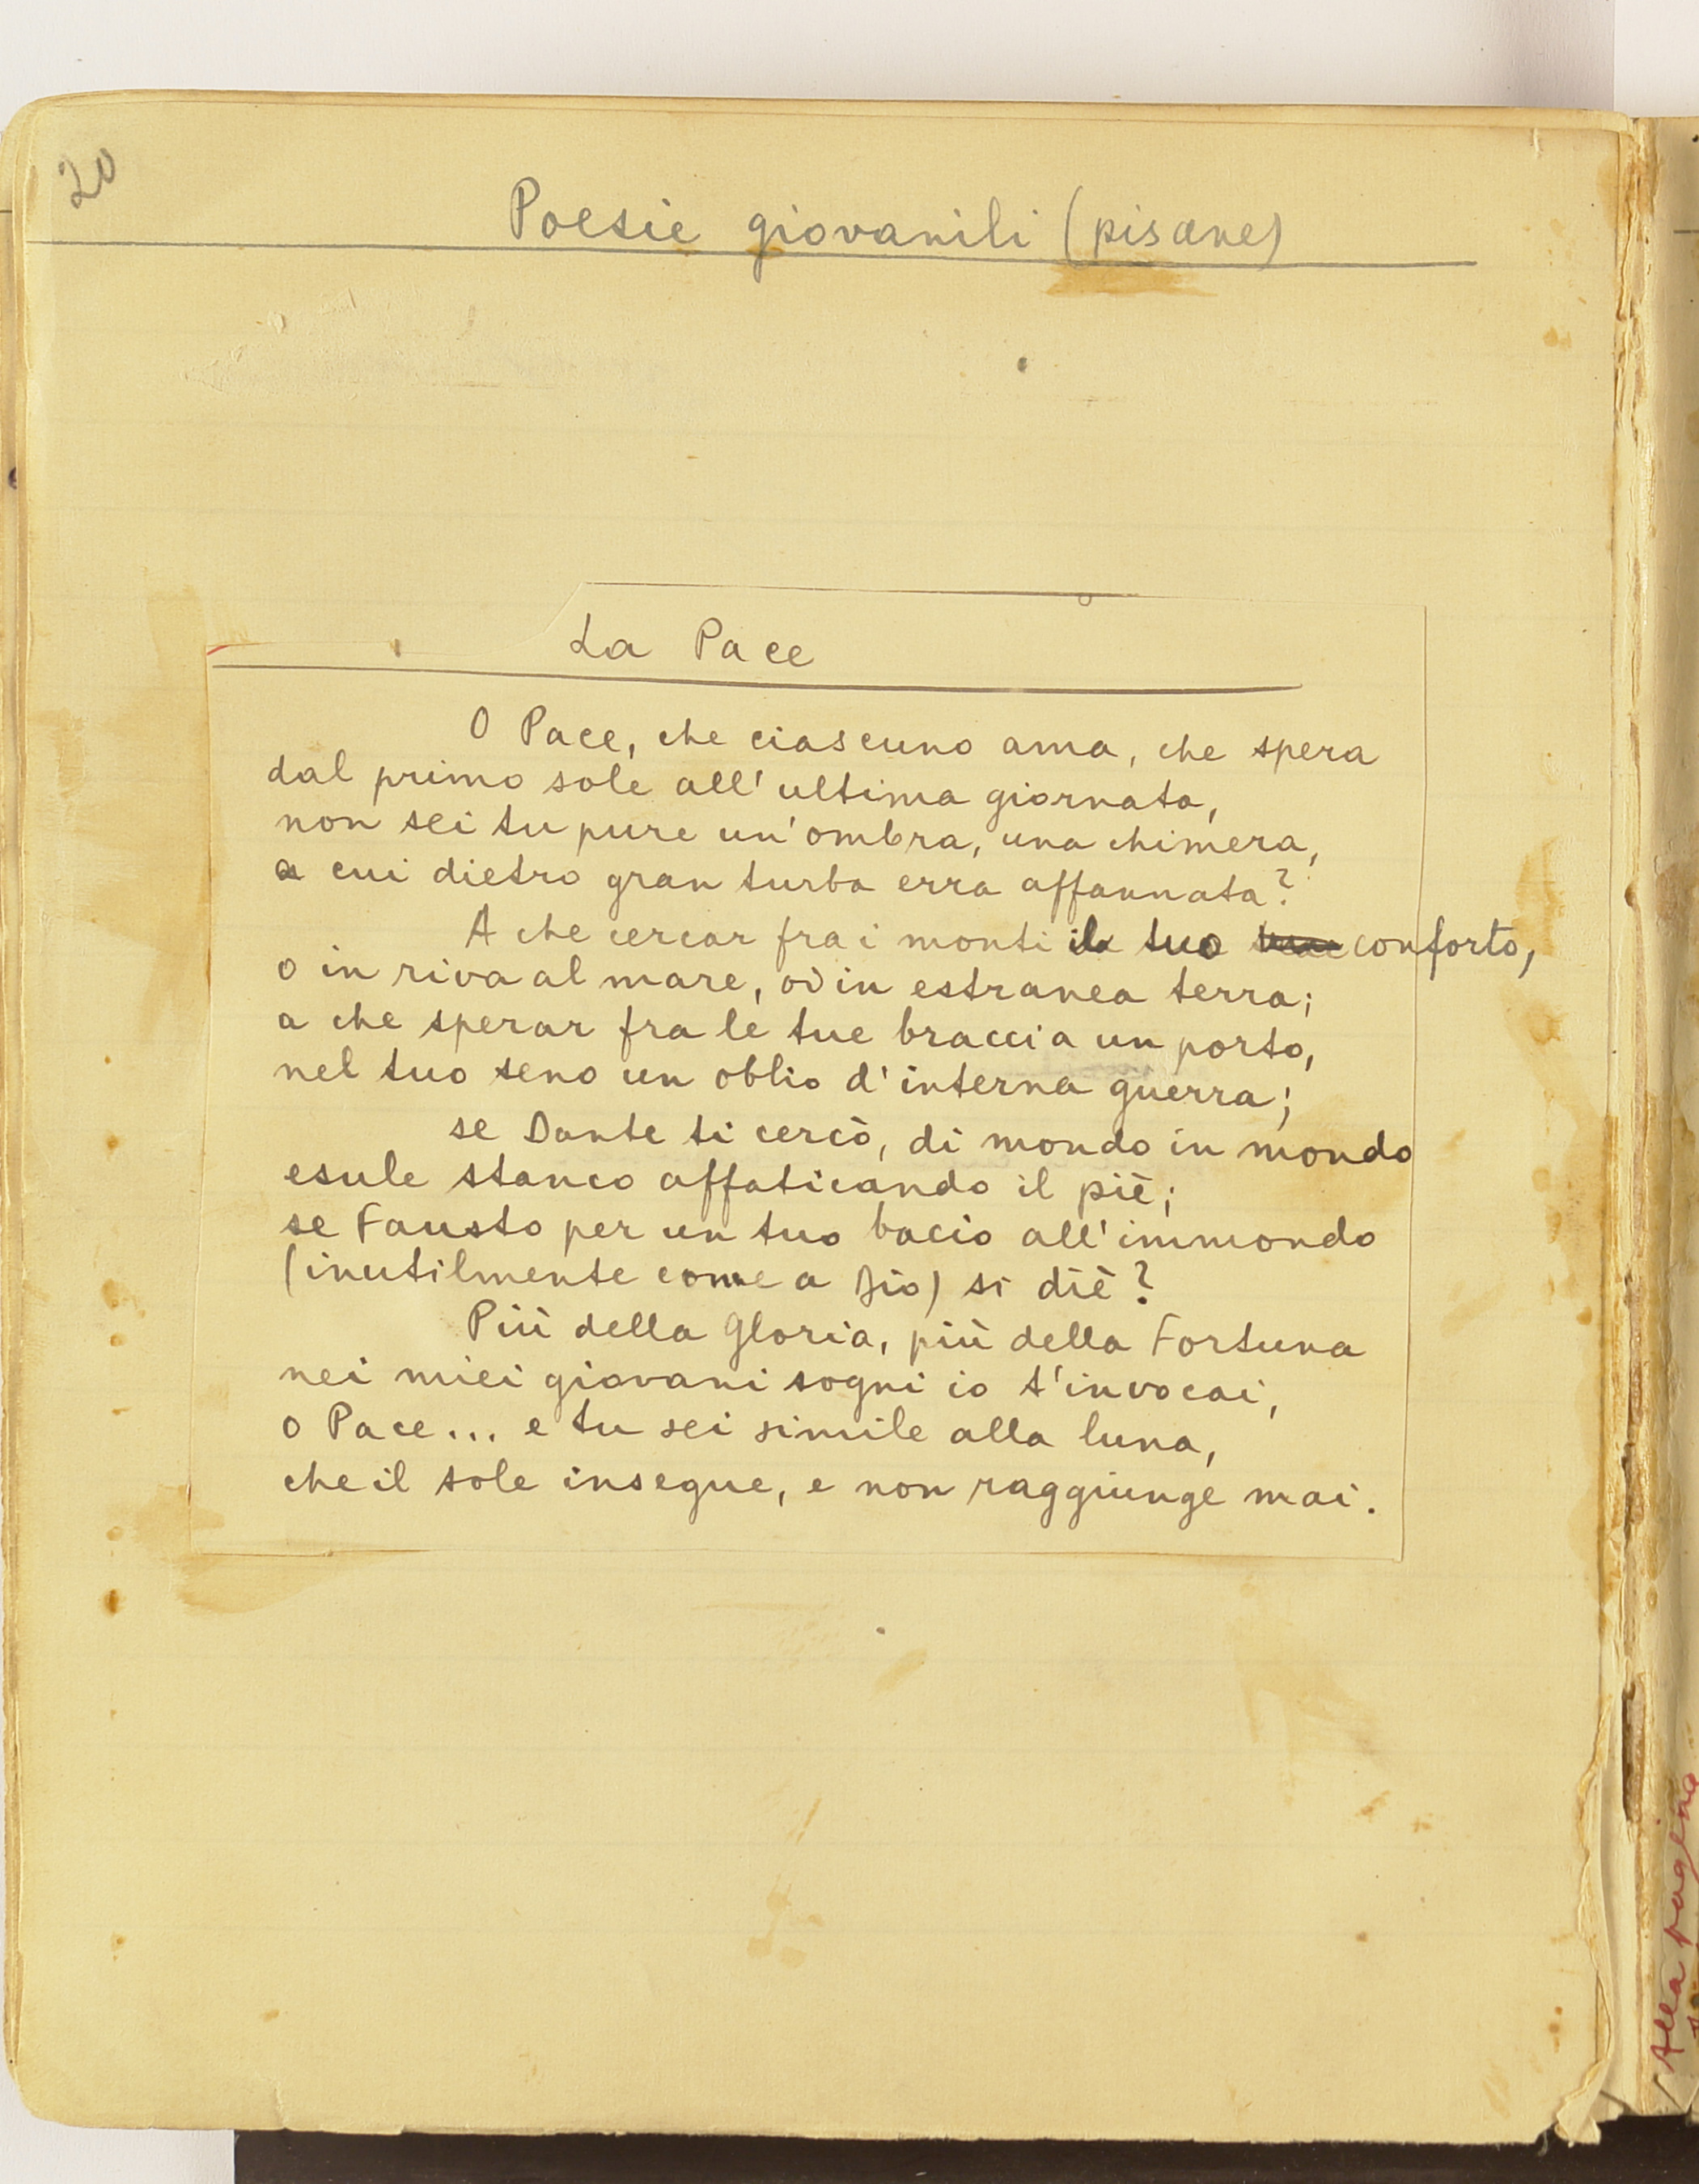 20
Poesie giovanili (pisane)
La Pace
O Pace, che ciascuno ama, che spera
dal primo sole all'ultima giornata,
non sei tu pure un'ombra, una chimera,
a cui dietro gran turba erra affannata?
A che cercar fra i monti il tuo conforto,
o in riva al mare, od in estranea terra;
a che sperar fra le tue braccia un porto,
nel tuo seno un oblio d'interna guerra;
se Dante ti cercò, di mondo in mondo
esule stanco affaticando il piè;
se Fausto per un tuo bacio all'immondo
(inutilmente come a Dio) si diè?
Più della Gloria, più della Fortuna
nei miei giovani sogni io t'invocai,
o Pace... e tu sei simile alla luna,
che il sole insegue, e non raggiunge mai.
Alla pagina